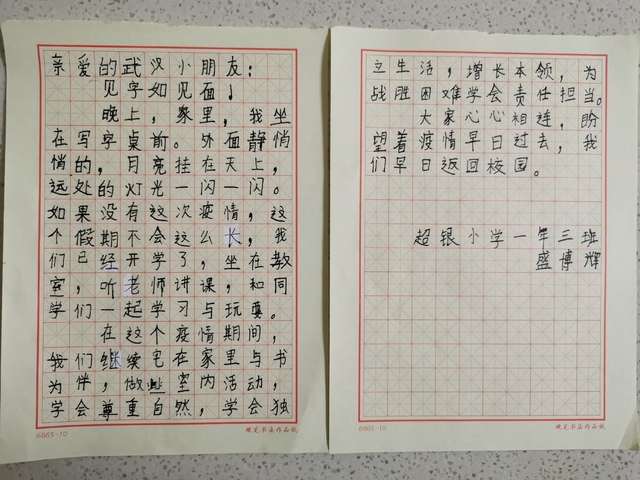 亲爱的武汉小朋友：
见字如见面！
晚上，家里，我坐
在写字桌前。外面静悄
悄的，月亮挂在天上，
远处的灯光一闪一闪。
如果没有这次疫情，这
个假期不会这么长，我
们已经开学了，坐在教
室，听老师讲课，和同
学们一起学习与玩耍。
在这个疫情期间，
我们继续宅在家里与书
为伴，做些室内活动，
学会尊重自然，学会独
6865-10
硬笔书法作品纸
立生活，增长本领，为
战胜困难学会责任担当。
大家心心相连，盼
望着疫情早日过去，我
们早日返回校园。
超银小学一年三班
盛博辉
6865-10
硬笔书法作品纸